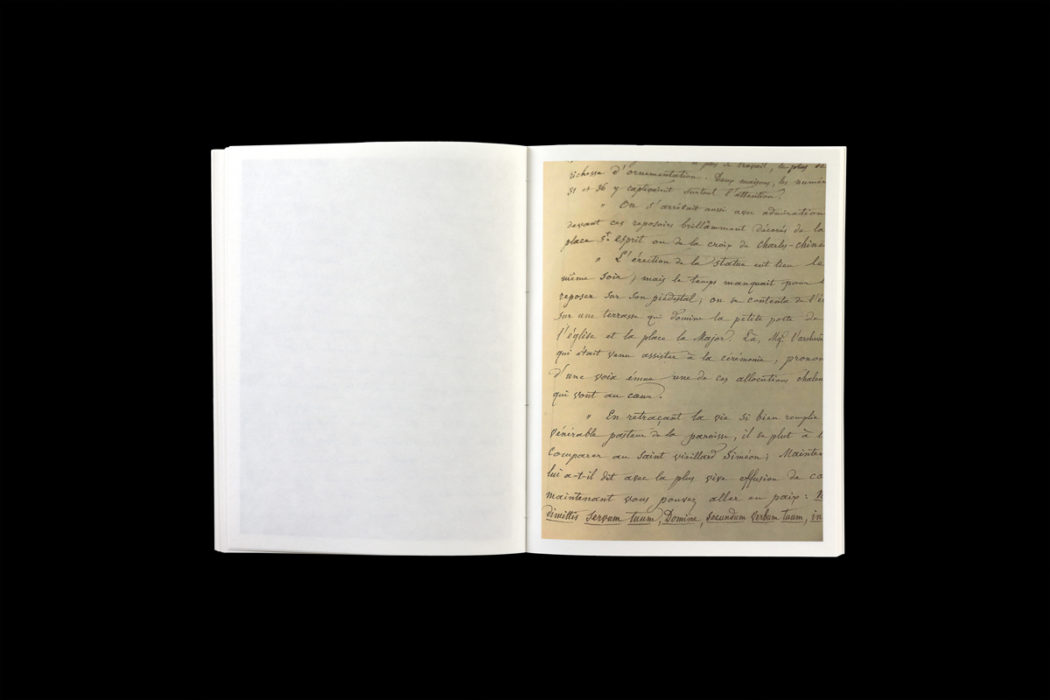 pas de travail, le plus de
richesse d'ornementation. Deux maisons, les numér
31 et 36 y captivaient surtout l'attention?
" On s'arrêtait aussi avec admiration
devant ces reposoirs brillamment décorés de la
place St Esprit ou de la croix de
" L'érection de la statue eut lieu le
même soir; mais le temps manquait pour l
reposer sur son piédestal; on se contenta de l'
sur une terrasse qui domine la petite porte de
l'église et la place la Major. Là, Mgr
qui était venu assister à la cérémonie, pronon
d'une voix émue une de ces allocutions chaleu
qui vont au cœur.
" En retraçant la vie si bien remplie
vénérable pasteur de la paroisse, il se plut à l
comparer au saint vieillard Siméon; Mainten
lui a-t-il dit avec la plus vive effusion de co
maintenant vous pouvez aller en paix:
dimittis servum tuum, Domine, secundum verbum tuum, in